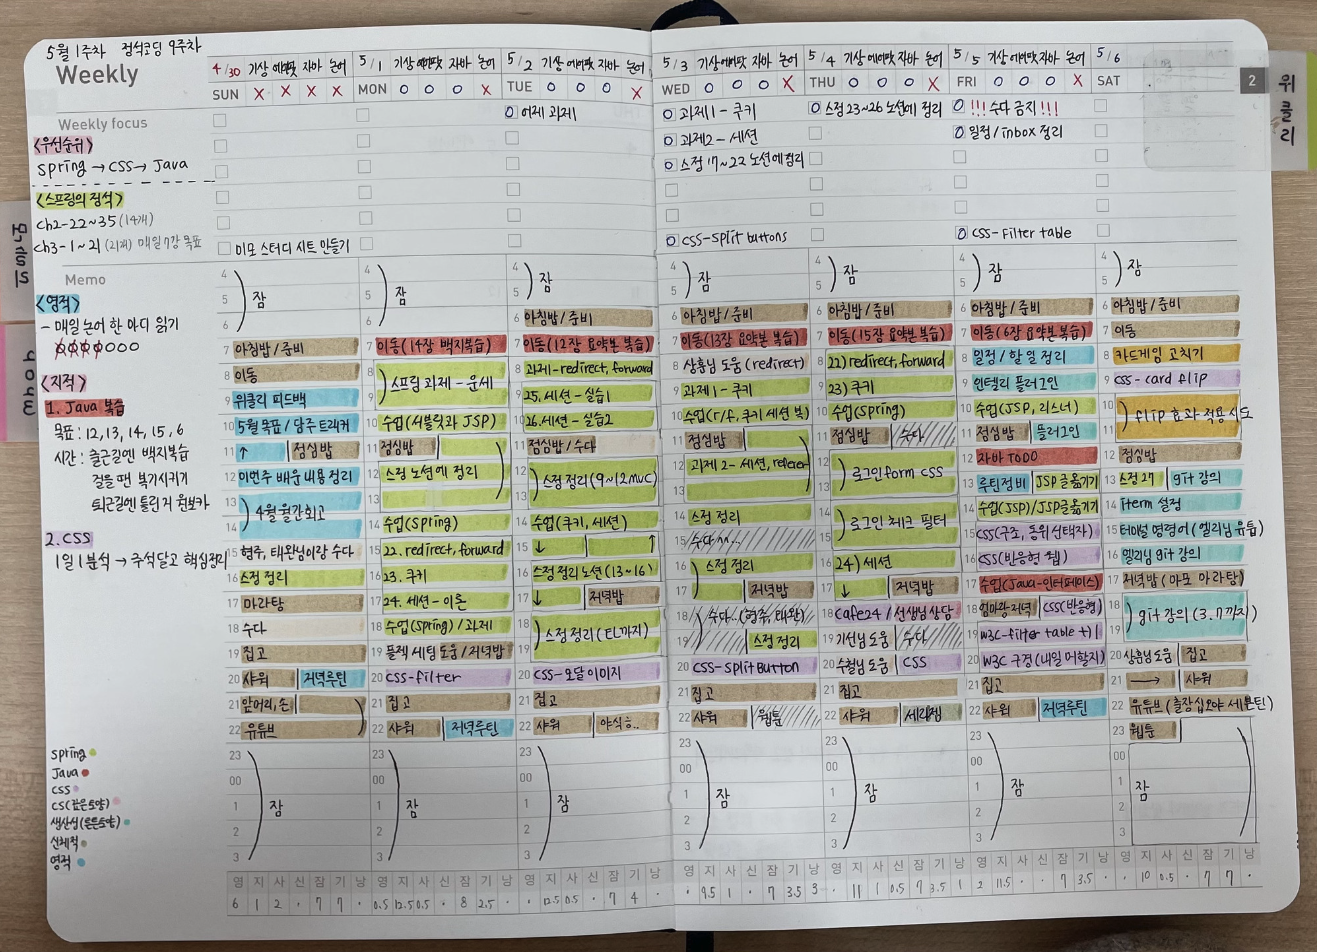 5월 1주차 정석코딩 9주차
Weekly
Weekly focus
<우선순위>
spring → css → Java
<스프링의 정석>
ch2-22~35 (14개)
ch3-1~21 (21개) 매일 7강 목표
Memo
<영적>
- 매일 논어 한 마디 읽기
<지적>
1. Java 복습
목표 : 12, 13, 14, 15, 6
시간 : 출근길엔 백지복습
걸을 땐 복기시키기
퇴근길엔 틀린 거 원보카
2. CSS
1일 1분석 → 주석달고 핵심정리
spring
Java
css
CS(깊은토양)
생산성(튼튼토양)
신체적
영적
4/30 기상 자바 논어
SUN X X X X
이모 스터디 시트 만들기
4
5
6
잠
7 아침밥 / 준비
8 이동
9 위클리 피드백
10 5월 목표 / 담주 트래커
11 ↑ 점심밥
12 이번주 배운 내용 정리
13
14
4월 월간회고
15 현주, 태완님이랑 수다
16 스정 정리
17 마라탕
18 수다
19 집고
20 샤워 저녁루틴
21 앞머리, 손
22 유튜브
23
00
1
2
3
잠
영 지 사 신 잠 기 낭
6 1 2 · 7 7 ·
5/1 기상 자바 논어
MON O O O X
4
5
6
잠
7 이동(14장 백지복습)
8
9
스프링 과제 - 운세
10 수업(서블릿과 JSP)
11 점심밥
12 스정 노션에 정리
13
14 수업(spring)
15 22. redirect, forward
16 23. 쿠키
17 24. 세션-이론
18 수업(spring) / 과제
19 플젝 세팅 도움 / 저녁밥
20 css-filter
21 집고
22 샤워 저녁루틴
23
00
1
2
3
잠
영 지 사 신 잠 기 낭
0.5 12.5 0.5 · 8 2.5 ·
5/2 기상 자바 논어
TUE O O O X
O 어제 과제
4
5
잠
6 아침밥 / 준비
7 이동(12장 요약본 복습)
8 과제-redirect, forward
9 25. 세션-실습1
10 26. 세션-실습2
11 점심밥 / 수다
12
13
스정 정리(9~12 MVC)
14 수업(쿠키, 세션)
15 ↓ ↑
16 스정 정리 노션(13~16)
17 ↓ 저녁밥
18
19
스정 정리(EL까지)
20 css-모달이미지
21 집고
22 샤워 야식ㅎ..
23
00
1
2
3
잠
영 지 사 신 잠 기 낭
· 12.5 0.5 · 7 4 ·
5/3 기상 자바 논어
WED O O O X
O 과제1 - 쿠키
O 과제2 - 세션
O 스정 17~22 노션에 정리
O css-split buttons
4
5
잠
6 아침밥 / 준비
7 이동(13장 요약본 복습)
8 상훈님 도움 (redirect)
9 과제1-쿠키
10 수업(r/f, 쿠키 세션 복)
11 점심밥
12 과제 2-세션, referer
13
14 스정 정리
15 수다^^..
16 스정 정리
17 저녁밥
18 수다..(현주, 태완)
19 스정 정리
20 css-splitButton
21 집고
22 샤워 웹툰
23
00
1
2
3
잠
영 지 사 신 잠 기 낭
· 9.5 1 · 7 3.5 3
5/4 기상 자바 논어
THU O O O X
O 스정 23~26 노션에 정리
4
5
잠
6 아침밥 / 준비
7 이동(15장 요약본 복습)
8 22) redirect, forward
9 23) 쿠키
10 수업(spring)
11 점심밥 수다
12
13
로그인 form css
14
15
로그인 체크 필터
16 24) 세션
17 ↓ 저녁밥
18 cafe24 / 선생님 상담
19 기선님 도움 수다
20 수철님 도움 CSS
21 집고
22 샤워
23
00
1
2
3
잠
영 지 사 신 잠 기 낭
· 11 1 0.5 7 3.5 1
5/5 기상 자바 논어
FRI O O O X
O !!! 수다 금지 !!!
O 일정/inbox 정리
O css-filter table
4
5
잠
6 아침밥 / 준비
7 이동(6장 요약본 복습)
8 일정 / 할 일 정리
9 인텔리 플러그인
10 수업(JSP, 리스너)
11 점심밥 플러그인
12 자바 TODO
13 루틴정비 JSP 글옮기기
14 수업(JSP)/JSP글옮기기
15 css(구조, 동위 선택자)
16 css(반응형 웹)
17 수업(Java-인터페이스)
18 엄마랑 저녁 css(반응형)
19 W3C-filter table +)
20 W3C 구경(내일 머할지)
21 집고
22 샤워 저녁루틴
23
00
1
2
3
잠
영 지 사 신 잠 기 낭
2 11.5 · · 7 3.5 ·
5/6
SAT
4
5
잠
6 아침밥 / 준비
7 이동
8 카드게임 고치기
9 css-card flip
10
11
flip 효과 적용 시도
12 점심밥
13 스정 27 git 강의
14 iterm 설정
15 터미널 명령어(엘리님 유튭)
16 엘리님 git 강의
17 저녁밥(아포 마라탕)
18
19
git 강의(3.7까지)
20 상훈님 도움 집고
21 → 샤워
22
23 웹툰
00
1
2
3
잠
영 지 사 신 잠 기 낭
· 10 0.5 · 7 7 ·
2
위클리